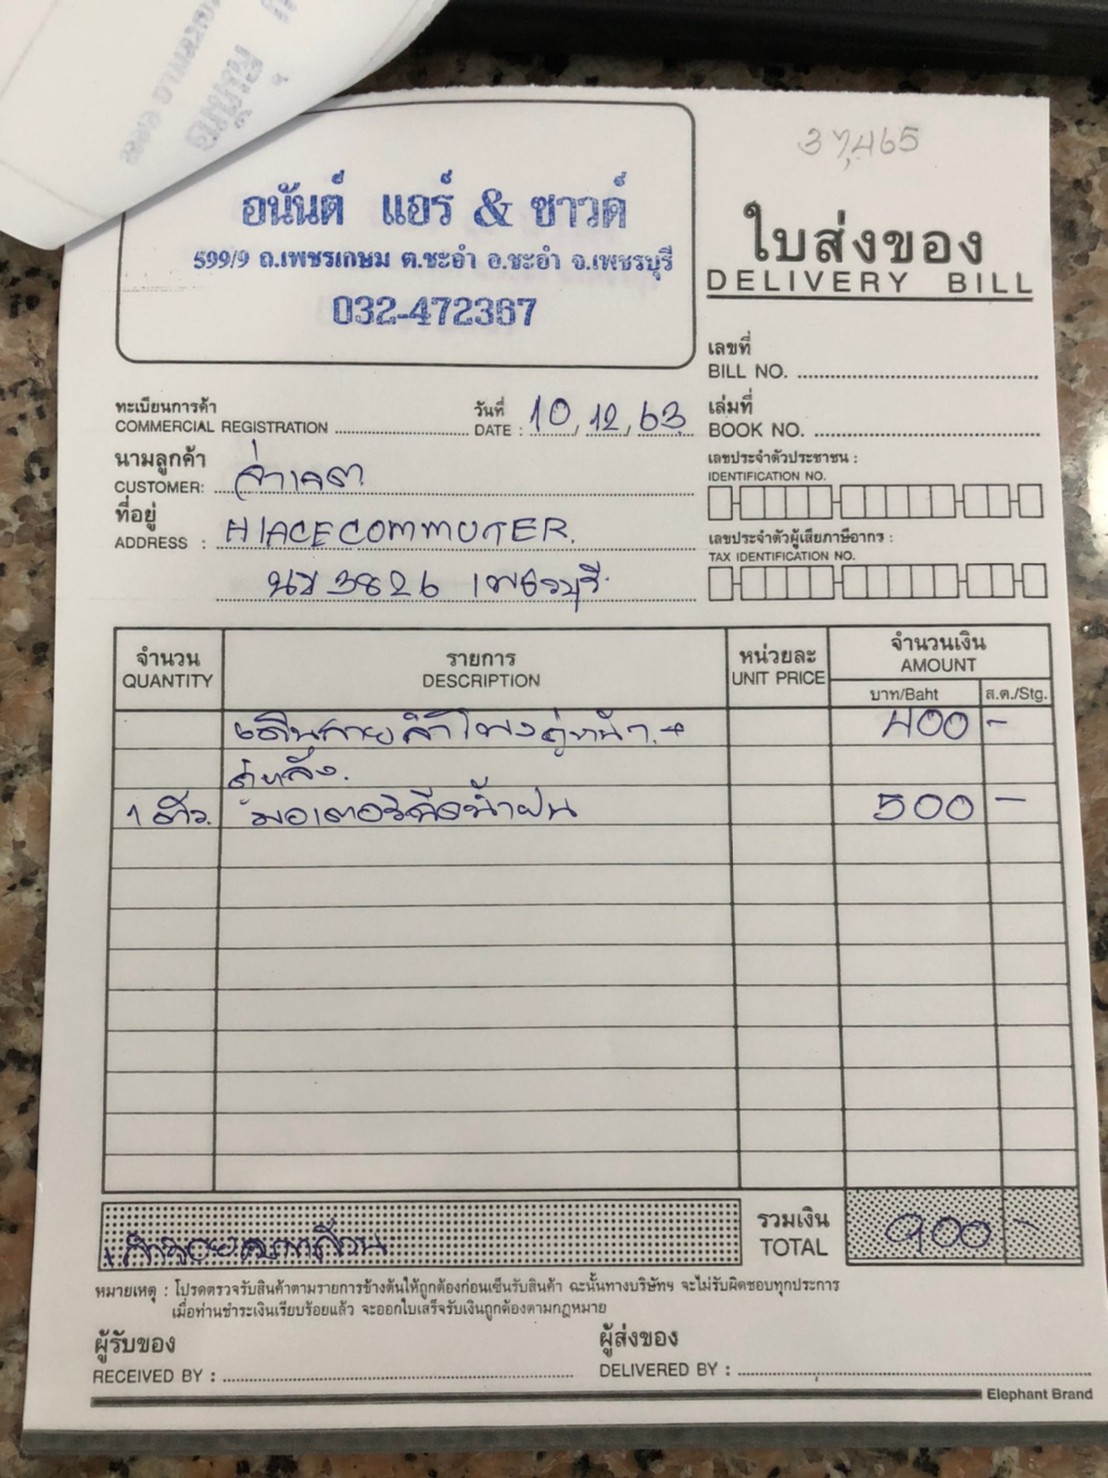 37,465
อนันต์ แอร์ & ซาวด์
599/9 ถ.เพชรเกษม ต.ชะอำ อ.ชะอำ จ.เพชรบุรี
032-472367
ใบส่งของ
DELIVERY BILL
เลขที่
BILL NO.
ทะเบียนการค้า
COMMERCIAL REGISTRATION
วันที่
DATE : 10, 12, 63
เล่มที่
BOOK NO.
นามลูกค้า
CUSTOMER:
ที่อยู่
ADDRESS : HIACE COMMUTER.
3826 เพชรบุรี
เลขประจำตัวประชาชน :
IDENTIFICATION NO.
เลขประจำตัวผู้เสียภาษีอากร :
TAX IDENTIFICATION NO.
จำนวน รายการ หน่วยละ จำนวนเงิน
QUANTITY DESCRIPTION UNIT PRICE AMOUNT
บาท/Baht ส.ต./Stg.
เดินสายลำโพงคู่หน้า + 400 -
คู่หลัง.
1 ตัว. มอเตอร์ฉีดน้ำฝน 500 -
รวมเงิน
TOTAL 900 -
หมายเหตุ : โปรดตรวจรับสินค้าตามรายการข้างต้นให้ถูกต้องก่อนเซ็นรับสินค้า ฉะนั้นทางบริษัทฯ จะไม่รับผิดชอบทุกประการ
เมื่อท่านชำระเงินเรียบร้อยแล้ว จะออกใบเสร็จรับเงินถูกต้องตามกฎหมาย
ผู้รับของ
RECEIVED BY :
ผู้ส่งของ
DELIVERED BY :
Elephant Brand